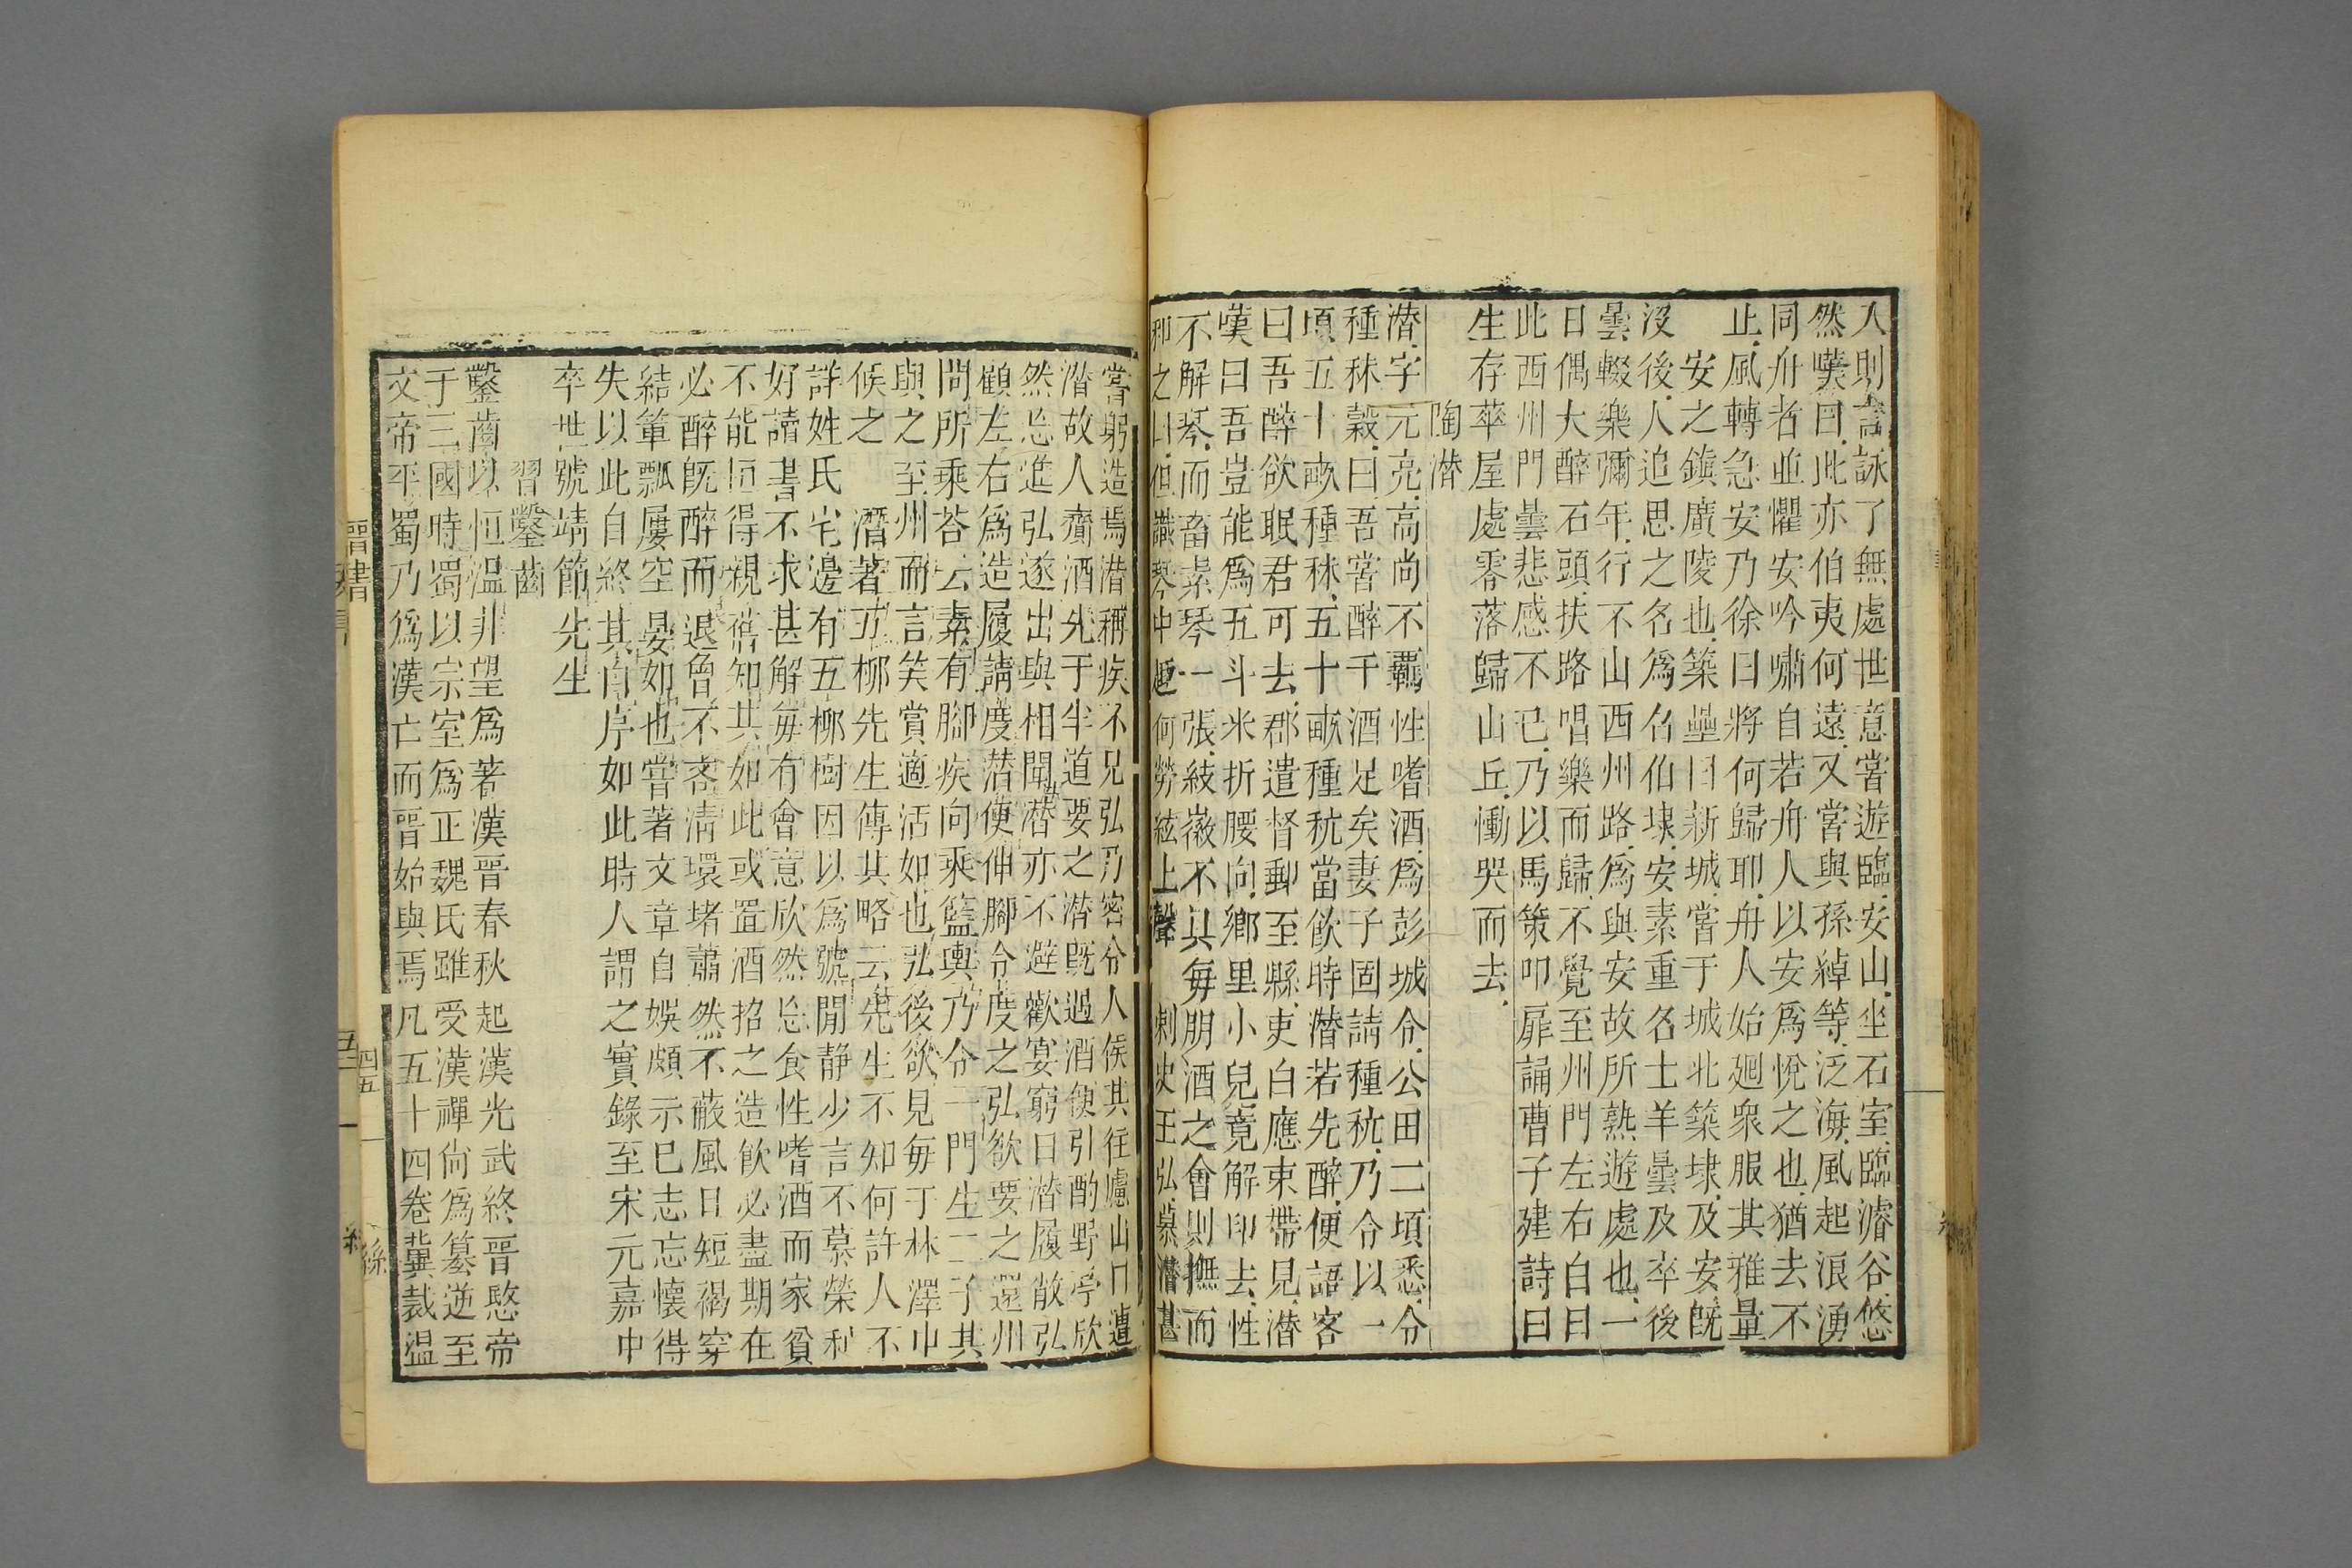 人則言詠了無處世意嘗遊臨安山坐石室臨濬谷悠
然嘆曰此亦伯夷何遠又嘗與孫綽等泛海風起浪湧
同舟者並懼安吟嘯自若舟人以安為悅之也猶去不
止風轉急安乃徐曰將何歸耶舟人始廻衆服其雅量
安之鎮廣陵也築壘曰新城嘗于城北築埭及安旣
沒後人追思之名為名伯埭安素重名士羊曇及卒後
曇輟樂彌年行不山西州路為與安故所熟遊處也一
日偶大醉石頭扶路唱樂而歸不覺至州門左右白日
此西州門曇悲感不已乃以馬策叩扉誦曹子建詩曰
生存華屋處零落歸山丘慟哭而去
陶潛
潛字元亮高尚不羈性嗜酒為彭城令公田二頃悉令
種秫穀曰吾嘗醉于酒足矣妻子固請種秔乃令以一
頃五十畝種秫五十畝種秔當飲時潛若先醉便語客
曰吾醉欲眠君可去郡遣督郵至縣吏白應束帶見潛
嘆曰吾豈能為五斗米折腰向鄉里小兒竟解印去性
不解琴而畜素琴一張絃徽不具每朋酒之會則撫而
和之曰但識琴中趣何勞絃上聲 刺史王弘慕潛甚
嘗躬造焉潛稱疾不見弘乃密令人候其往廬山日遣
潛故人齎酒先于半道要之潛旣遇酒便引酌野亭欣
然忘進弘遂出與相聞潛亦不避歡宴窮日潛履敝弘
顧左右為造履請度潛便伸腳令度之弘欲要之還州
問所乘荅云素有腳疾向乘籃輿乃令一門生二子共
與之至州而言笑賞適活如也弘後欲見每于林澤中
候之 潛著五柳先生傳其略云先生不知何許人不
詳姓氏宅邊有五柳樹因以為號閒靜少言不慕榮利
好讀書不求甚解每有會意欣然忘食性嗜酒而家貧
不能恒得親舊知其如此或置酒招之造飲必盡期在
必醉旣醉而退曾不吝清環堵蕭然不蔽風日短褐穿
結簞瓢屢空晏如也嘗著文章自娛頗示己志忘懷得
失以此自終其自序如此時人謂之實錄至宋元嘉中
卒世號靖節先生
習鑿齒
鑿齒以恒溫非望為著漢晉春秋起漢光武終晉愍帝
于三國時蜀以宗室為正魏氏雖受漢禪尙為篡逆至
文帝平蜀乃為漢亡而晉始與焉凡五十四卷冀裁溫
晉書
四五